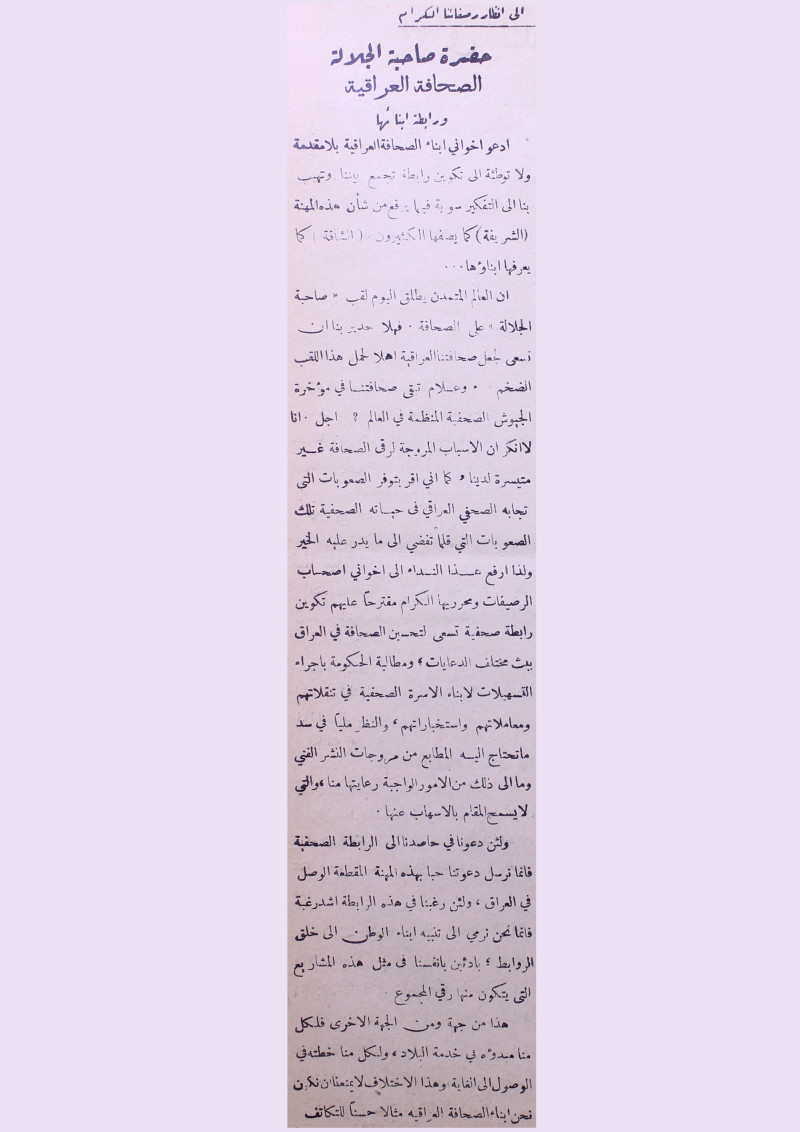 الى انظار رصفائنا الكرام
حضرة صاحبة الجلالة
الصحافة العراقية
ورابطة ابنائها
ادعو اخواني ابناء الصحافة العراقية بلا مقدمة
ولا توطئة الى تكوين رابطة تجمع بيننا وتهيب
بنا الى التفكير سوية فيما يرفع من شأن هذه المهنة
(الشريفة) كما يصفها الكثيرون . (الشاقة) كما
يعرفها ابناؤها...
ان العالم المتمدن يطلق اليوم لقب « صاحبة
الجلالة » على الصحافة . فهلا جدير بنا ان
نسعى لجعل صحافتنا العراقية اهلا لحمل هذا اللقب
الضخم . وعلام تبقى صحافتنا في مؤخرة
الجيوش الصحفية المنظمة في العالم ? اجل . انا
لا انكر ان الاسباب المروجة لرقى الصحافة غير
متيسرة لدينا و كما اني اقر بتوفر الصعوبات التى
تجابه الصحفي العراقي فى حياته الصحفية تلك
الصعوبات التي قلما تفضي الى ما يدر عليه الخير
ولذا ارفع هذا النداء الى اخواني اصحاب
الرصيفات ومحرريها الكرام مقترحاً عليهم تكوين
رابطة صحفية تسعى لتحسين الصحافة في العراق
ببث مختلف الدعايات ، ومطالبة الحكومة باجراء
التسهيلات لابناء الاسرة الصحفية في تنقلاتهم
ومعاملاتهم واستخباراتهم ، والنظر ملياً في سد
ماتحتاج اليه المطابع من مروجات النشر الفني
وما الى ذلك من الامور الواجبة رعايتها منا ، والتي
لا يسمح المقام بالاسهاب عنها .
ولئن دعونا في حاصدنا الى الرابطة الصحفية
فانما نرسل دعوتنا حبا بهذه المهنة المقطعة الوصل
في العراق ، ولئن رغبنا في هذه الرابطة اشد رغبة
فانما نحن نرمي الى تنبيه ابناء الوطن الى خلق
الروابط ؛ بادئين بانفسنا فى مثل هذه المشاريع
التى يتكون منها رقي المجموع .
هذا من جهة ومن الجهة الاخرى فلكل
منا مبدؤه في خدمة البلاد ، ولكل منا خطته في
الوصول الى الغاية وهذا الاختلاف لا يمنعنا ان نكون
نحن ابناء الصحافة العراقيه مثالا حسناً للتكاتف